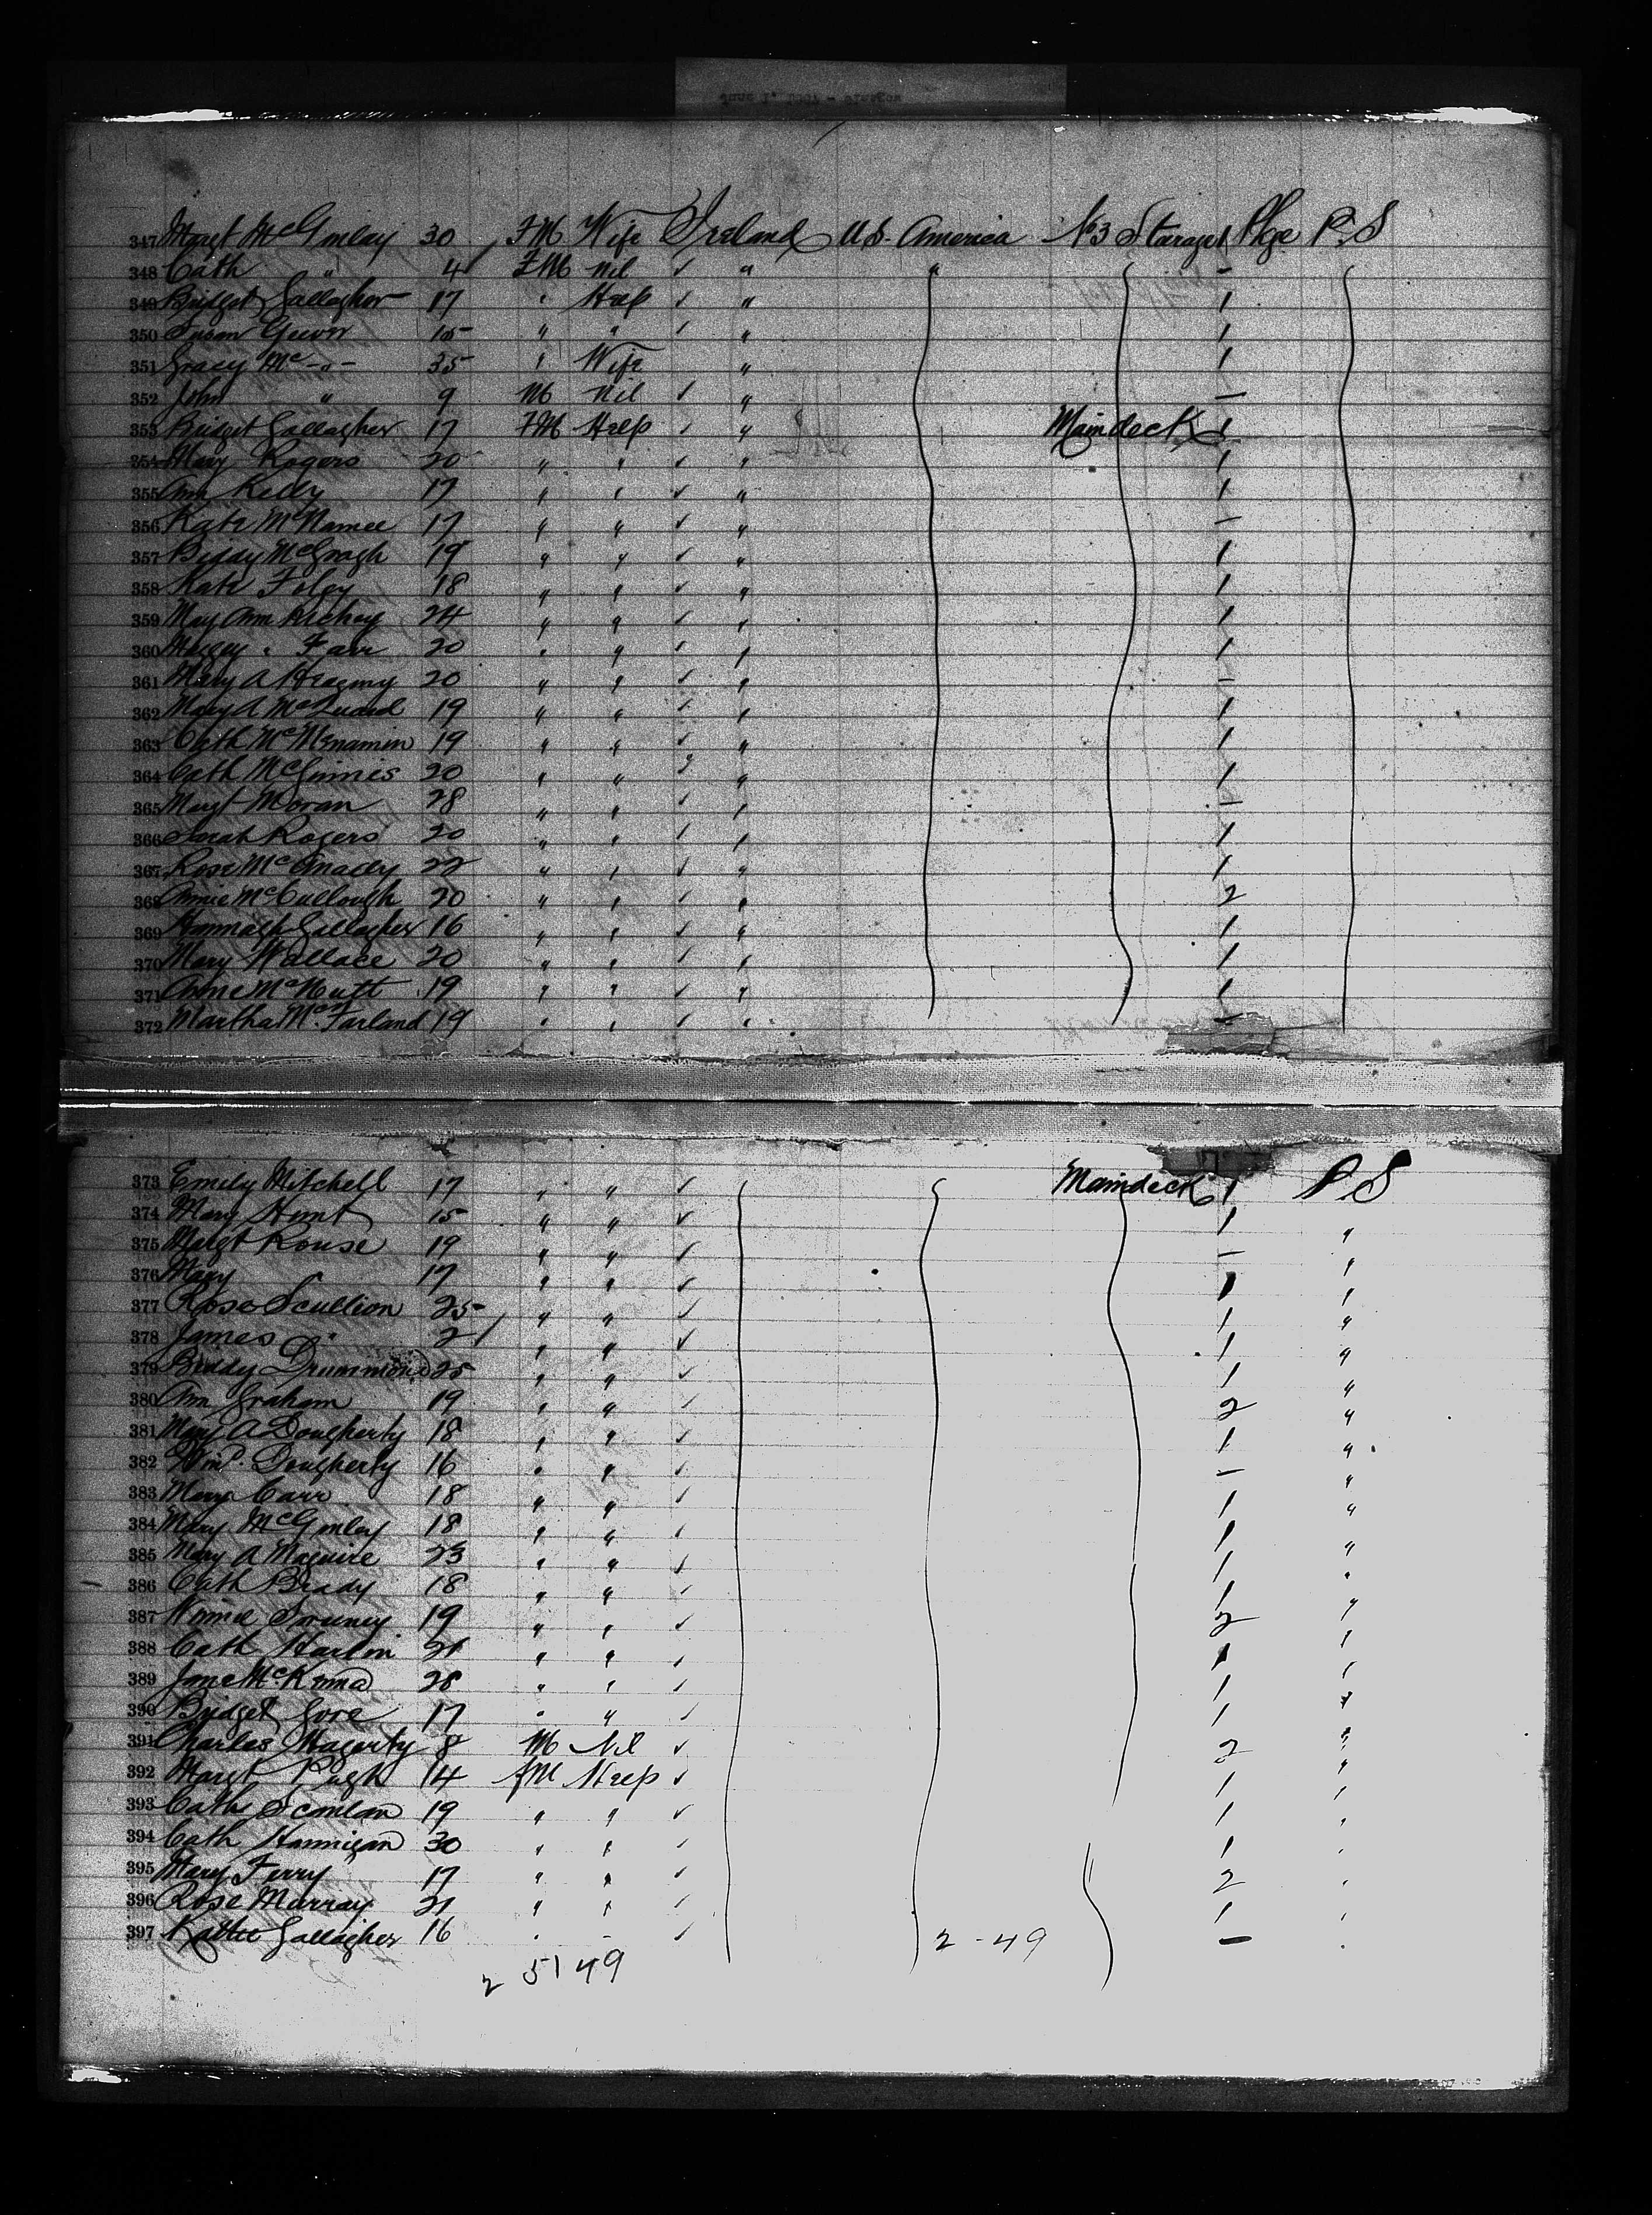 347 Margt McGinley 30 / FM Wife Ireland U.S. America No 3 Steerage 1 Pkge P.S
348 Cath " 4 / FM Nil ✓ " " -
349 Bridget Gallagher 17 " Help ✓ " 1
350 Susan Geever 15 " " ✓ " 1
351 Gracy Mc -"- 35 " Wife " 1
352 John " 9 M Nil ✓ " -
353 Bridget Gallagher 17 FM Help ✓ " Maindeck 1
354 Mary Rogers 20 " " ✓ " 1
355 Ann Kelly 17 " " ✓ " 1
356 Kate McNamee 17 " " ✓ " -
357 Biddy McGragh 19 " " ✓ " 1
358 Kate Foley 18 " " ✓ " 1
359 May Ann Richey 24 " " ✓ " 1
360 " Farr 20 " " ✓ " 1
361 Mary A 20 " " ✓ " -
362 Mary A McQuard 19 " " ✓ " 1
363 Cath McMenamin 19 " " ✓ " 1
364 Cath McGinnis 20 " " " 1
365 Margt Moran 28 " " ✓ " -
366 Sarah Rogers 20 " " ✓ " 1
367 Rose McAnally 22 " " ✓ " 1
368 Annie McCullough 20 " " ✓ " 2
369 Hannagh Gallagher 16 " " ✓ " 1
370 Mary Wallace 20 " " ✓ " 1
371 Anne McNutt 19 " " ✓ " 1
372 Martha McFarland 19 " " ✓ " -
373 Emily Mitchell 17 " " ✓ Maindeck 1 P.S
374 Mary Hunt 15 " " ✓ 1 "
375 Margt Rouse 19 " " ✓ - "
376 Mary 17 " " ✓ 1 "
377 Rose Scullion 25 / " " ✓ 1 "
378 James " 2 / " " ✓ 1 "
379 Biddy Drummond 25 " " ✓ 1 "
380 Ann Graham 19 " " ✓ 2 "
381 Mary A Dougherty 18 " " ✓ 1 "
382 Dougherty 16 " " ✓ - "
383 Mary Carr 18 " " ✓ 1 "
384 Mary McGinley 18 " " ✓ 1 "
385 Mary A Maguire 23 " " ✓ 1 "
386 Cath Brady 18 " " ✓ 1 "
387 Sweeney 19 " " ✓ 2 "
388 Cath Harlin 21 " " ✓ 1 "
389 Jane McKenna 28 " " ✓ 1 "
390 Bridget Gore 17 " " ✓ 1 "
391 Charles Hagerty 8 M Nil ✓ 2 "
392 Margt Pugh 14 FM Help ✓ 1 "
393 Cath Scanlan 19 " " ✓ 1 "
394 Cath Hannigan 30 " " ✓ 1 "
395 Mary Ferry 17 " " ✓ 2 "
396 Rose Murray 21 " " ✓ 1 "
397 Kattie Gallagher 16 " " ✓ 2 - 49 - "
2 51 49